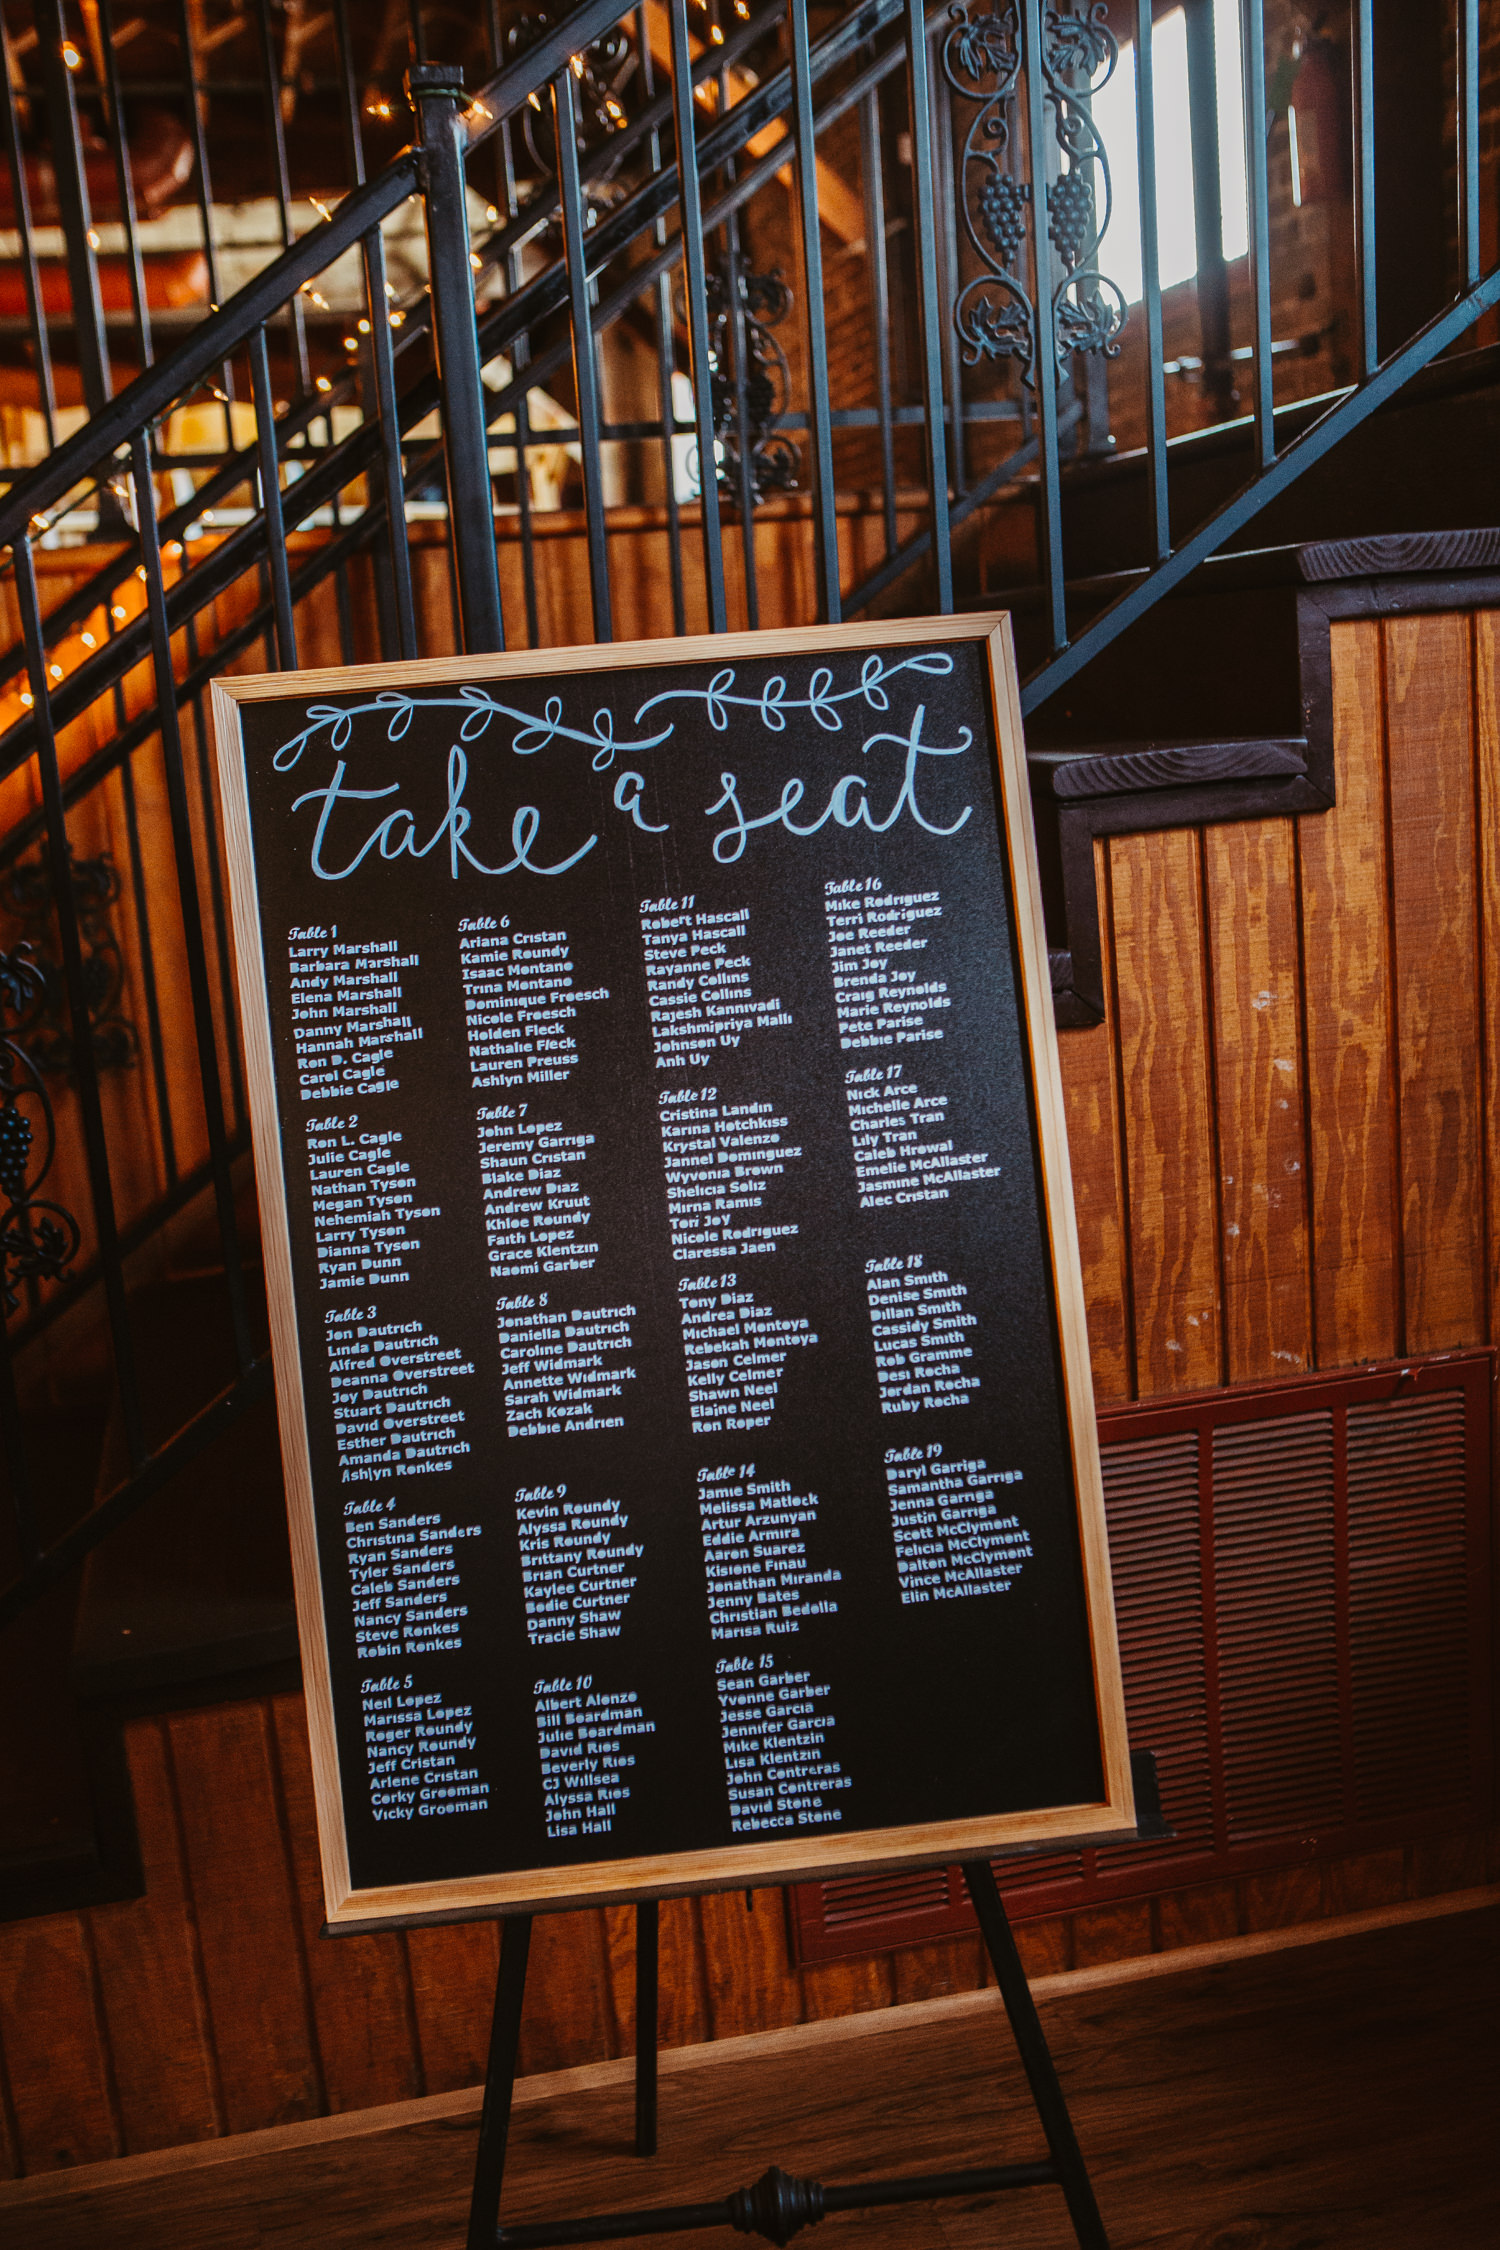 take a seat
Table 1
Larry Marshall
Barbara Marshall
Andy Marshall
Elena Marshall
John Marshall
Danny Marshall
Hannah Marshall
Ron D. Cagle
Carol Cagle
Debbie Cagle
Table 2
Ron L. Cagle
Julie Cagle
Lauren Cagle
Nathan Tyson
Megan Tyson
Nehemiah Tyson
Larry Tyson
Dianna Tyson
Ryan Dunn
Jamie Dunn
Table 3
Jon Dautrich
Linda Dautrich
Alfred Overstreet
Deanna Overstreet
Joy Dautrich
Stuart Dautrich
David Overstreet
Esther Dautrich
Amanda Dautrich
Ashlyn Ronkes
Table 4
Ben Sanders
Christina Sanders
Ryan Sanders
Tyler Sanders
Caleb Sanders
Jeff Sanders
Nancy Sanders
Steve Ronkes
Robin Ronkes
Table 5
Neil Lopez
Marissa Lopez
Roger Roundy
Nancy Roundy
Jeff Cristan
Arlene Cristan
Corky Grooman
Vicky Grooman
Table 6
Ariana Cristan
Kamie Roundy
Isaac Montano
Trina Montano
Dominique Froesch
Nicole Froesch
Holden Fleck
Nathalie Fleck
Lauren Preuss
Ashlyn Miller
Table 7
John Lopez
Jeremy Garriga
Shaun Cristan
Blake Diaz
Andrew Diaz
Andrew Kruut
Khloe Roundy
Faith Lopez
Grace Klentzin
Naomi Garber
Table 8
Jonathan Dautrich
Daniella Dautrich
Caroline Dautrich
Jeff Widmark
Annette Widmark
Sarah Widmark
Zach Kozak
Debbie Andrien
Table 9
Kevin Roundy
Alyssa Roundy
Kris Roundy
Brittany Roundy
Brian Curtner
Kaylee Curtner
Bodie Curtner
Danny Shaw
Tracie Shaw
Table 10
Albert Alonzo
Bill Boardman
Julie Boardman
David Rios
Beverly Rios
CJ Willsea
Alyssa Rios
John Hall
Lisa Hall
Table 11
Robert Hascall
Tanya Hascall
Steve Peck
Rayanne Peck
Randy Collins
Cassie Collins
Rajesh Kannivadi
Lakshmipriya Malli
Johnson Uy
Anh Uy
Table 12
Cristina Landin
Karina Hotchkiss
Krystal Valenzo
Jannel Dominguez
Wyvonia Brown
Shelicia Soliz
Mirna Ramis
Tori Joy
Nicole Rodriguez
Claressa Jaen
Table 13
Tony Diaz
Andrea Diaz
Michael Montoya
Rebekah Montoya
Jason Celmer
Kelly Celmer
Shawn Neel
Elaine Neel
Ron Roper
Table 14
Jamie Smith
Melissa Matlock
Artur Arzunyan
Eddie Armira
Aaron Suarez
Kisione Finau
Jonathan Miranda
Jenny Bates
Christian Bedolla
Marisa Ruiz
Table 15
Sean Garber
Yvonne Garber
Jesse Garcia
Jennifer Garcia
Mike Klentzin
Lisa Klentzin
John Contreras
Susan Contreras
David Stone
Rebecca Stone
Table 16
Mike Rodriguez
Terri Rodriguez
Joe Reeder
Janet Reeder
Jim Joy
Brenda Joy
Craig Reynolds
Marie Reynolds
Pete Parise
Debbie Parise
Table 17
Nick Arce
Michelle Arce
Charles Tran
Lily Tran
Caleb Hrowal
Emelie McAllaster
Jasmine McAllaster
Alec Cristan
Table 18
Alan Smith
Denise Smith
Dillan Smith
Cassidy Smith
Lucas Smith
Rob Gramme
Desi Rocha
Jordan Rocha
Ruby Rocha
Table 19
Daryl Garriga
Samantha Garriga
Jenna Garriga
Justin Garriga
Scott McClymont
Felicia McClymont
Dalton McClymont
Vince McAllaster
Elin McAllaster